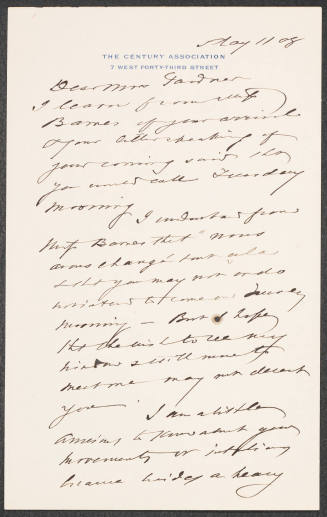 May 11 08
THE CENTURY ASSOCIATION
7 WEST FORTY-THIRD STREET
Dear Mrs Gardner
I learn from Miss
Barnes of your arrival
& your letter speaking of
your coming said that
you would call Tuesday
morning
I understand from
Miss Barnes that "nous
avons changé tout cela"
& that you may not
to come on Tuesday
morning — But I hope
that the wish to see my
windows & still more to
meet me may not desert
you. I am a little
anxious to know about your
movements or
because besides a heavy